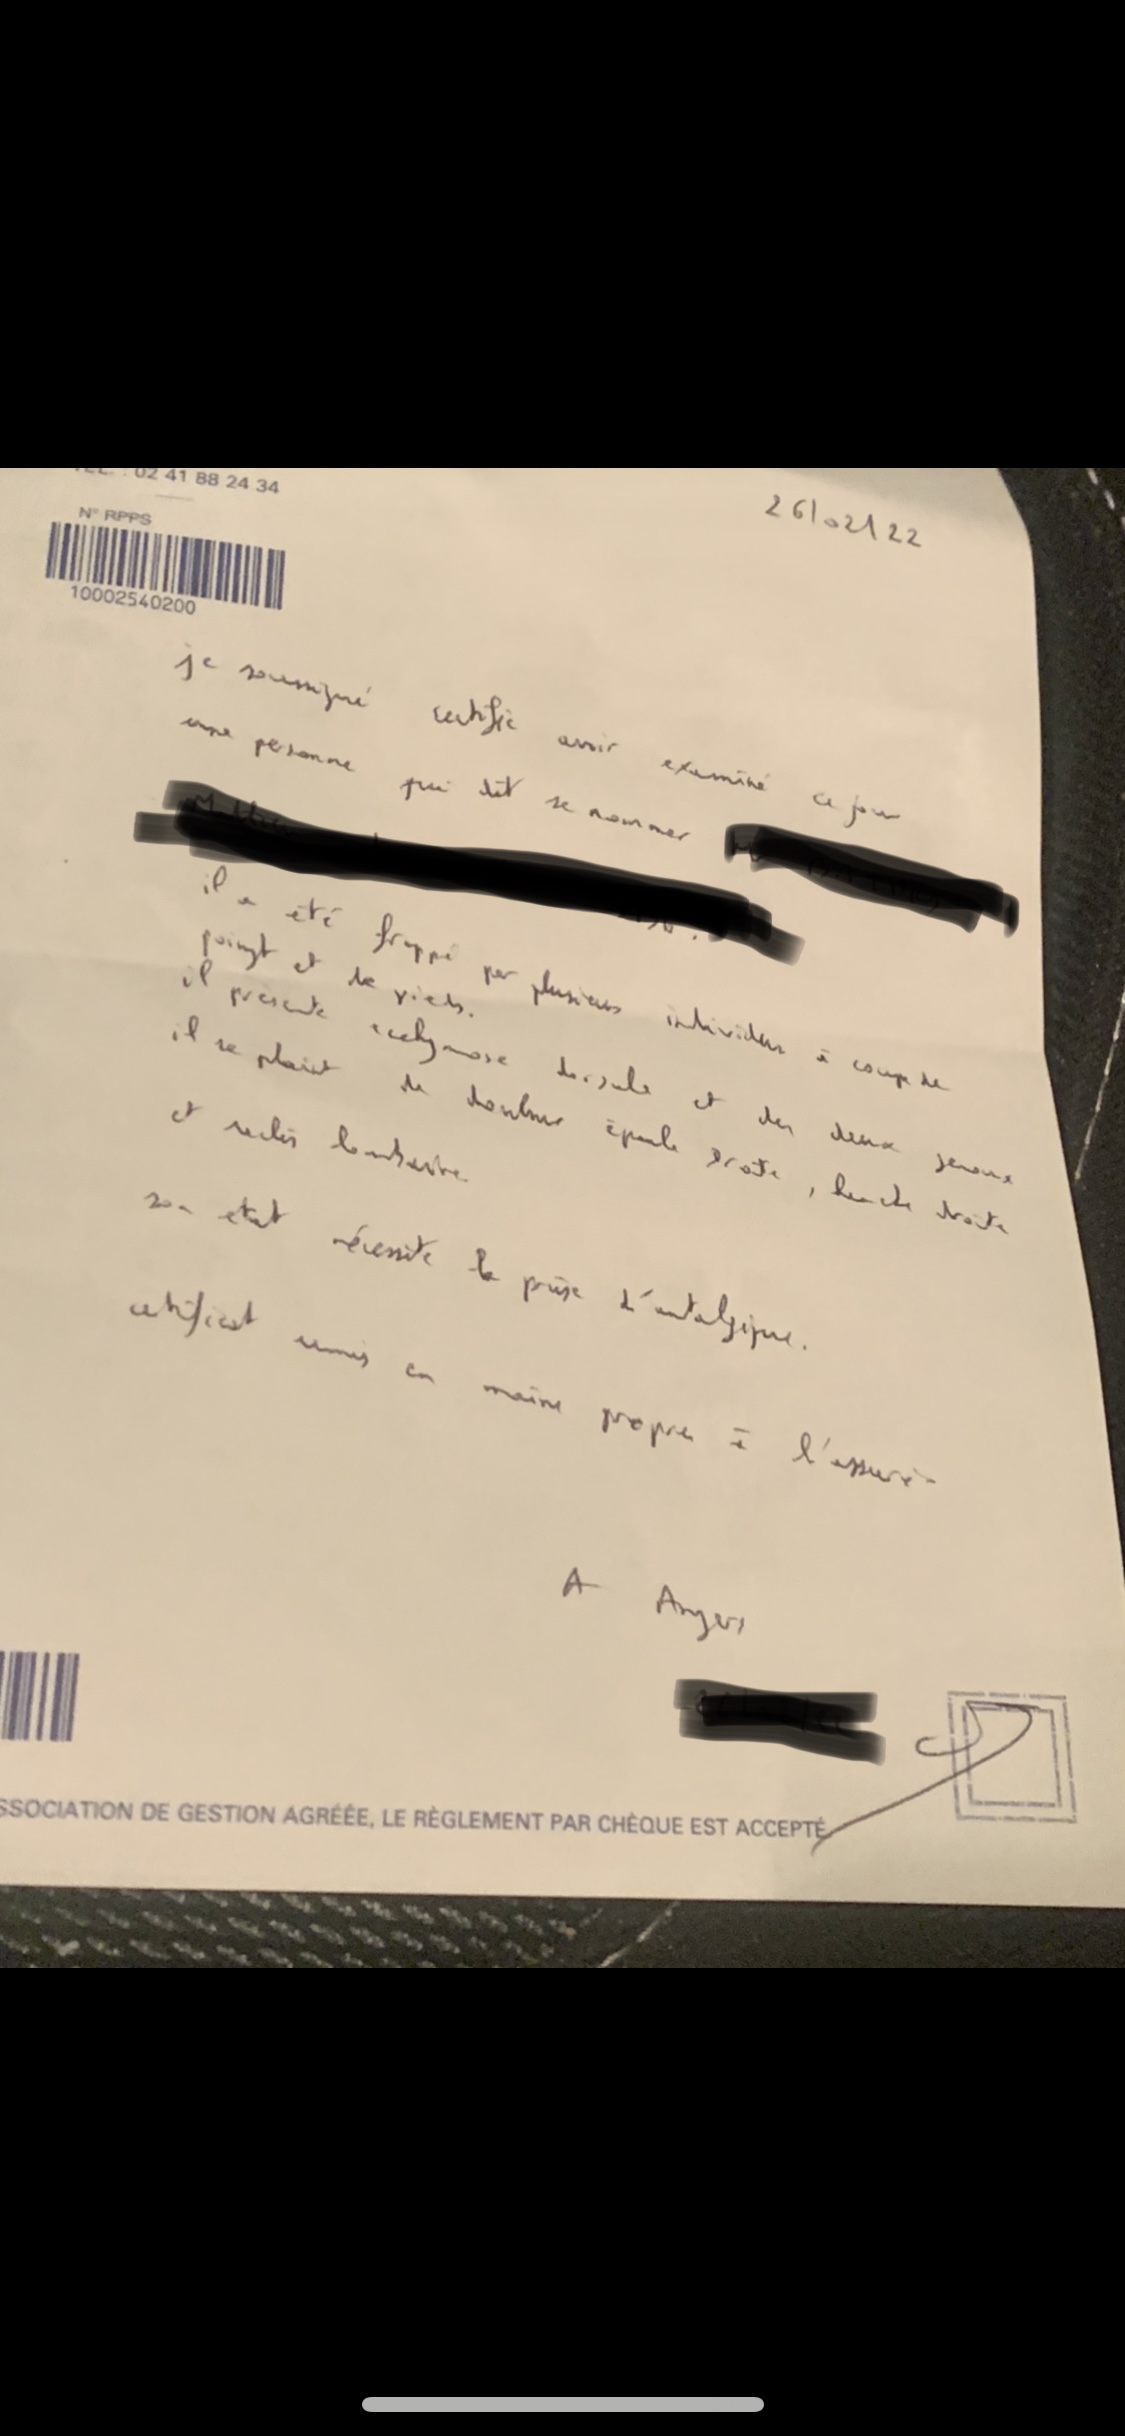 TEL. : 02 41 88 24 34
26/02/22
N° RPPS
10002540200
je soussigné certifie avoir examiné ce jour
une personne qui dit se nommer
il a été frappé par plusieurs individus à coup de
poingt et de pieds.
il présente ecchymose dorsale et des deux genoux
il se plaint de douleur épaule droite, hanche droite
et rachis lombaire
son etat nécessite la prise d'antalgique.
certificat remis en maine propre à l'assuré
A Angers
SSOCIATION DE GESTION AGRÉÉE, LE RÈGLEMENT PAR CHÈQUE EST ACCEPTÉ